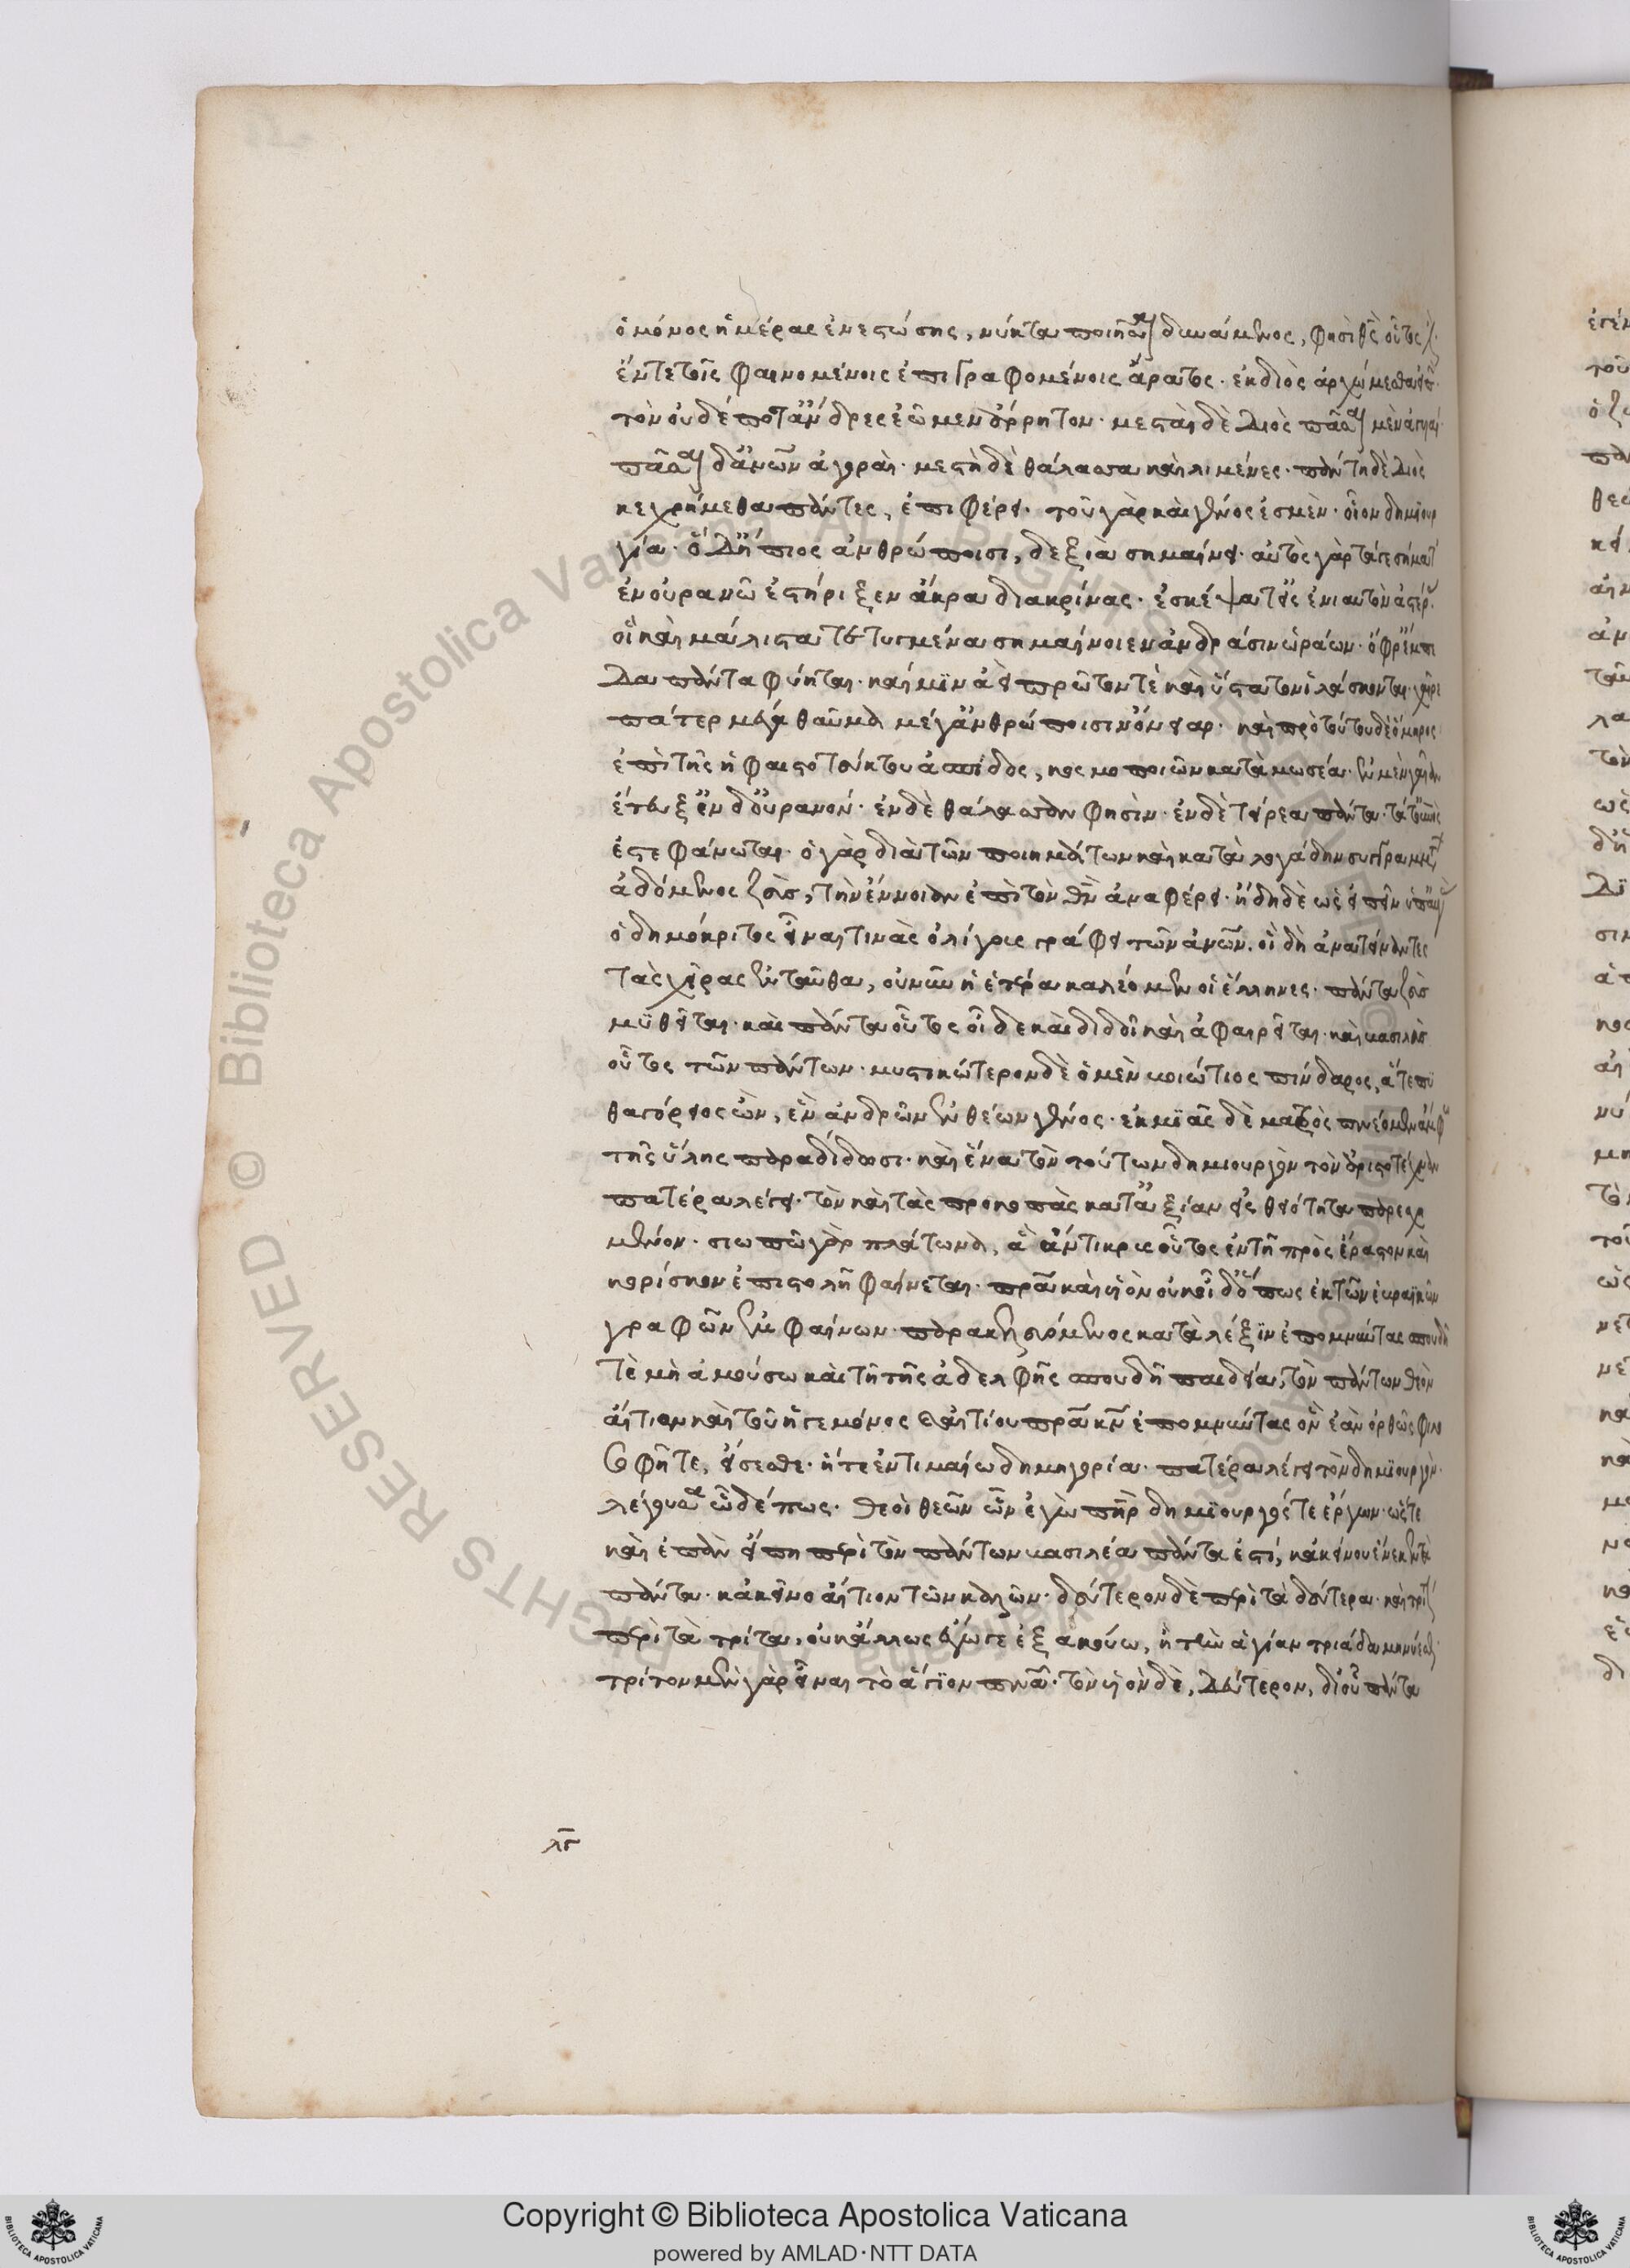 ὁ μόνος ἡμέρας ἐνεστώσης, νύκτα ποιῆσαι δυνάμενος, φησὶ θεὸς οὗτος
ἔν τε τοῖς φαινομένοις ἐπιγραφομένοις ἄρατος. ἐκ διὸς ἀρχώμεσθα εἰπὼν
τὸν οὐδέποτ' ἄνδρες ἐῶμεν ἄρρητον. μεσταὶ δὲ Διὸς πᾶσαι μὲν ἀγυιαὶ
πᾶσαι δ' ἀνθρώπων ἀγοραὶ. μεστὴ δὲ θάλασσα καὶ λιμένες. πάντη δὲ Διὸς
κεχρήμεθα πάντες, ἐπιφέρει. τοῦ γὰρ καὶ γένος ἐσμὲν. οἷον δημιουρ
γία. ὁ δ' ἤπιος ἀνθρώποισι, δεξιὰ σημαίνει. αὐτὸς γὰρ τάγε σήματ'
ἐν οὐρανῶ ἐστήριξεν ἄκρα διακρίνας. ἐσκέψατο δ' εἰς ἐνιαυτὸν ἀστέρας
οἵ καὶ μάλιστα τετυγμένα σημαίνοιεν ἀνδράσιν ὡράων. ὄφρ' ἔμπε
δα πάντα φύηται. καί μιν ἀεὶ πρῶτόν τὲ καὶ ὕστατον ἱλάσκονται. χαῖρε
πάτερ μέγα θαῦμα μέγ' ἀνθρώποισιν ὄνειαρ. καὶ πρὸ τούτου δὲ ὅμηρος
ἐπὶ τῆς ἡφαιστοτεύκτου ἀσπίδος, κοσμοποιῶν κατὰ μωσέα. ἐν μὲν γαῖαν
ἔτευξ' ἐν δ' οὐρανόν. ἐν δὲ θάλασσαν φησὶν. ἐν δὲ τείρεα πάντα. τά τ' οὐρανὸς
ἐστεφάνωται. ὁ γὰρ διὰ τῶν ποιημάτων καὶ καταλογάδην συγγραμμάτων
ἀδόμενος ζεὺς, τὴν ἔννοιαν ἐπὶ τὸν θεὸν ἀναφέρει. ἤδη δὲ ὡς εἰπεῖν ὑπ' αὐγὰς
ὁ δημόκριτος εἶναι τινὰς ὀλίγους γράφει τῶν ἀνθρώπων. οἳ δὴ ἀνατείναντες
τὰς χεῖρας ἐνταῦθα, οὗ νῦν ἠέρα καλέομεν οἱ ἕλληνες. πάντα ζεὺς
μυθεῖται. καὶ πάντα οὗτος οἶδε καὶ διδοῖ καὶ ἀφαιρεῖται. καὶ βασιλεὺς
οὗτος τῶν πάντων. μυστικώτερον δὲ ὁ μὲν βοιώτιος πίνδαρος, ἅτε πυ
θαγόρειος ὢν, ἓν ἀνδρῶν ἓν θεῶν γένος. ἐκ μιᾶς δὲ ματρὸς πνέομεν ἄμφω
τῆς ὕλης παραδίδωσι. καὶ ἕνα τὸν τούτων δημιουργὸν τὸν ἀριστοτέχναν
πατέρα λέγει. τὸν καὶ τὰς προκοπὰς κατ' ἀξίαν εἰς θειότητα παρεσχ
μένον. σιωπῶ γὰρ πλάτωνα, ἃ ἄντικρυς οὗτος ἐν τῆ πρὸς ἔραστον καὶ
κορίσκον ἐπιστολῆ φαίνεται. πατέρα καὶ υἱὸν οὐκ οἶδ' ὅπως ἐκ τῶν ἑβραϊκῶν
γραφῶν ἐμφαίνων. παρακελευόμενος κατὰ λέξιν ἐπομνύντας σπουδῆ
τὲ μὴ ἀμούσω καὶ τῆ τῆς ἀδελφῆς σπουδῆ παιδεία, τὸν πάντων θεὸν
αἴτιον καὶ τοῦ ἡγεμόνος καὶ αἰτίου πατέρα κύριον ἐπομνύντας ὃν ἐὰν ὀρθῶς φιλο
σοφῆτε, εἴσεσθε. ἥ τε ἐν τιμαίω δημηγορία. πατέρα λέγει τὸν δημιουργὸν.
λέγουσα ὧδέ πως. θεοὶ θεῶν ὧν ἐγὼ πατὴρ δημιουργός τε ἔργων. ὥστε
καὶ ἐπὰν εἴπη περὶ τὸν πάντων βασιλέα πάντα ἐστί, κἀκείνου ἕνεκεν τὰ
πάντα. κἀκεῖνο αἴτιον τῶν καλῶν. δεύτερον δὲ περὶ τὰ δεύτερα. καὶ τρίτον
περὶ τὰ τρίτα, οὐκ ἄλλως ἔγωγε ἐξακούω, ἢ τὴν ἁγίαν τριάδα μηνύεσθαι
τρίτον μὲν γὰρ εἶναι τὸ ἅγιον πνεῦμα. τὸν υἱὸν δὲ, δεύτερον, δι' οὗ πάντα
Copyright © Biblioteca Apostolica Vaticana
powered by AMLAD·NTT DATA